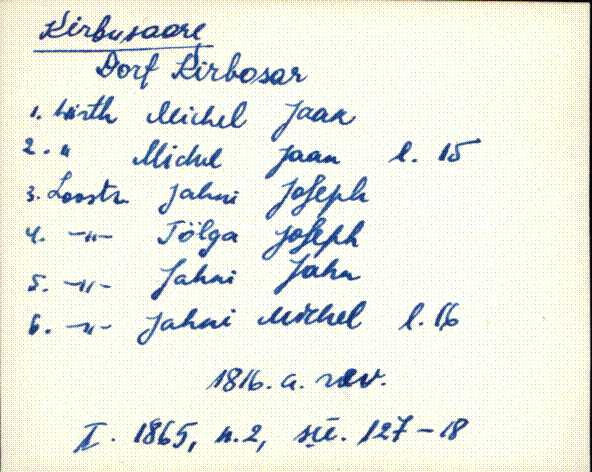 Kirbusaare
Dorf Kirbosar
1. Wirth Michel Jaan
2. " Michel Jaan l. 15
3. Loostr. Jahni Joseph
4. -"- Tölga Joseph
5. -"- Jahni Jahn
6. -"- Jahni Michel l. 16
1816. a. rev.
I. 1865, n. 2, 127-18